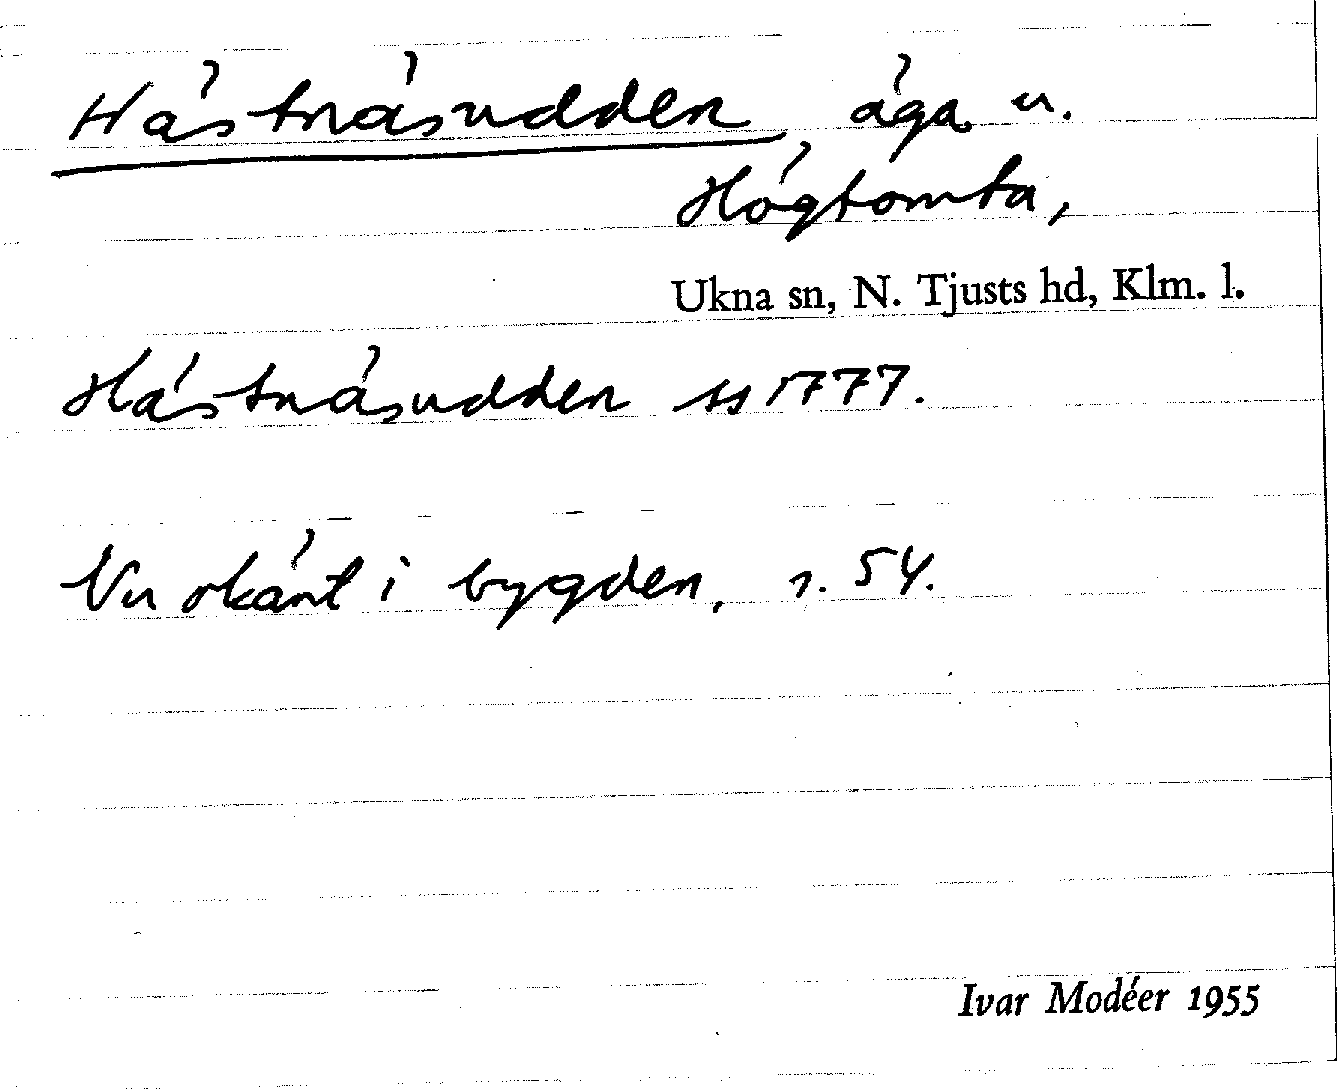 Hästnäsudden, äga u.
Högtomta,
Ukna sn, N. Tjusts hd, Klm. l.
Hästnäsudden ss 1777.
Nu okänt i bygden, s. 54.
Ivar Modéer 1955